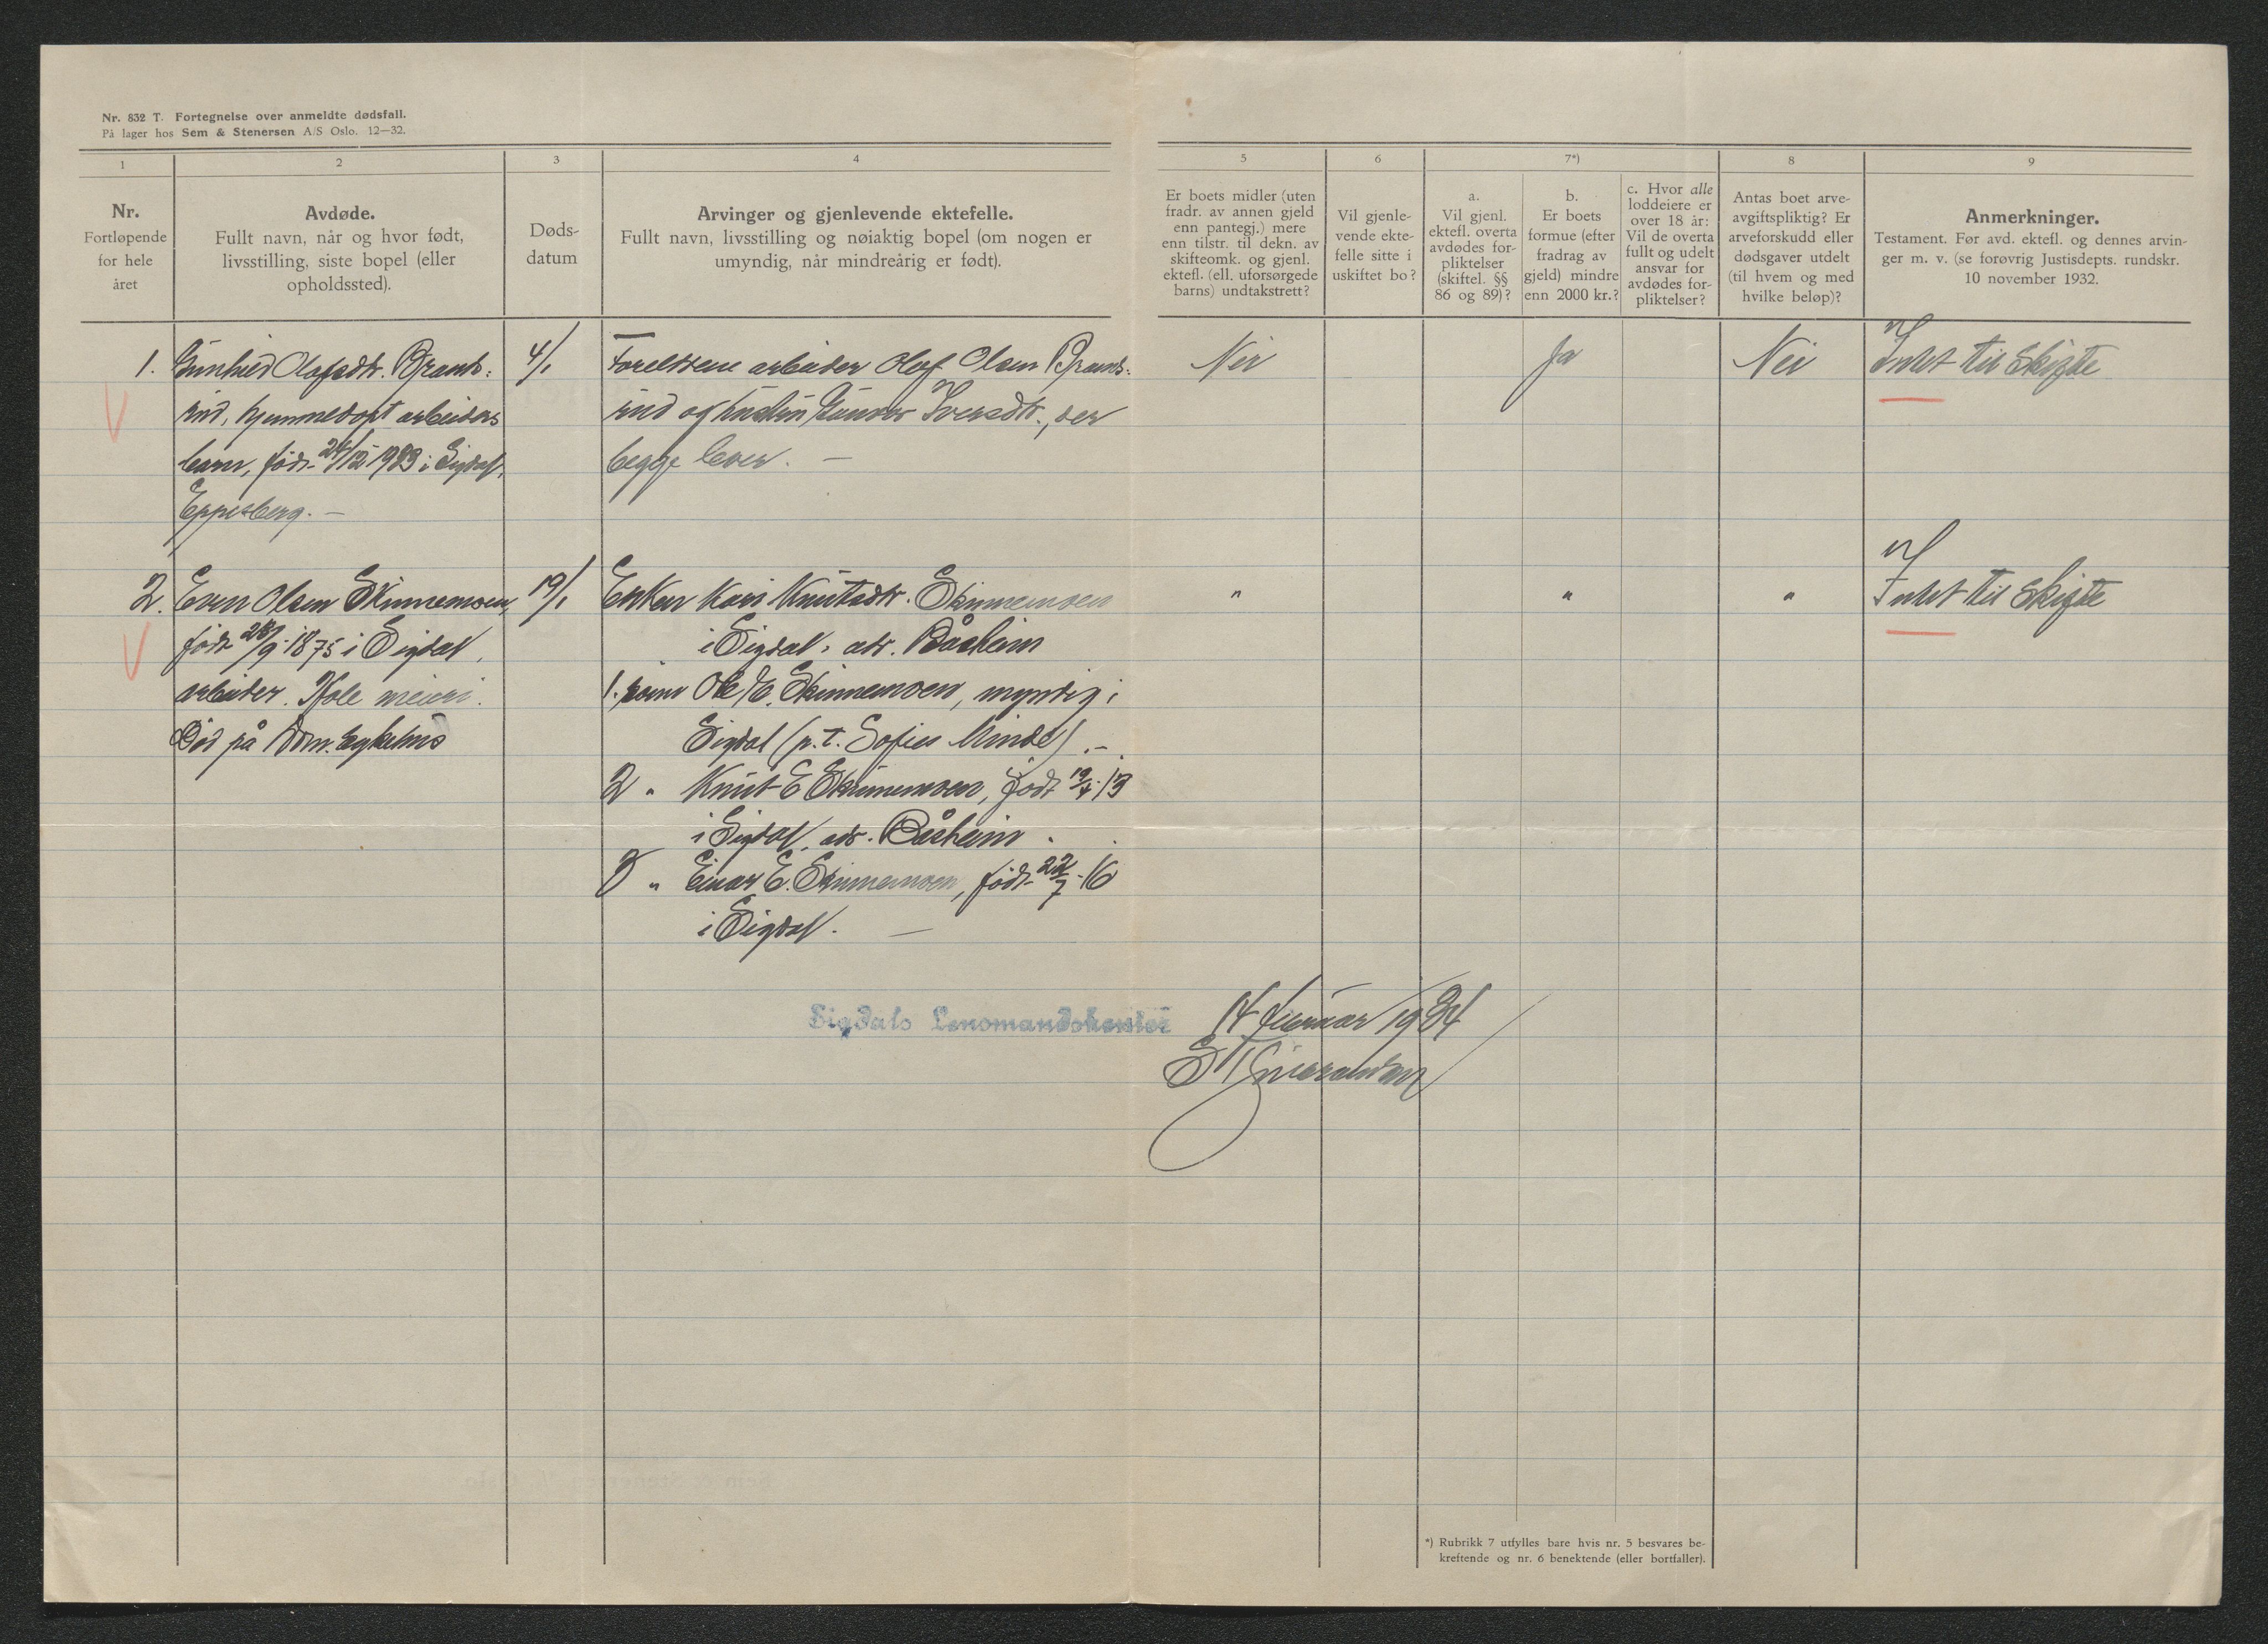 Nr. 832 T. Fortegnelse over anmeldte dødsfall.
På lager hos Sem & Stenersen A/S Oslo. 12—32.
1
2
3
4
5
6
7*)
8
9
Nr.
Fortløpende
for hele
året
Avdøde.
Fullt navn, når og hvor født,
livsstilling, siste bopel (eller
opholdssted).
Døds-
datum
Arvinger og gjenlevende ektefelle.
Fullt navn, livsstilling og nøiaktig bopel (om nogen er
umyndig, når mindreårig er født).
Er boets midler (uten
fradr. av annen gjeld
enn pantegj.) mere
enn tilstr. til dekn. av
skifteomk. og gjenl.
ektefl. (ell. uforsørgede
barns) undtakstrett?
Vil gjenle-
vende ekte-
felle sitte i
uskiftet bo?
a.
Vil gjenl.
ektefl. overta
avdødes for-
pliktelser
(skiftel. §§
86 og 89)?
b.
Er boets
formue (efter
fradrag av
gjeld) mindre
enn 2000 kr.?
c. Hvor alle
loddeiere er
over 18 år:
Vil de overta
fullt og udelt
ansvar for
avdødes for-
pliktelser?
Antas boet arve-
avgiftspliktig? Er
arveforskudd eller
dødsgaver utdelt
(til hvem og med
hvilke beløp)?
Anmerkninger.
Testament. Før avd. ektefl. og dennes arvin-
ger m. v. (se forøvrig Justisdepts. rundskr.
10 november 1932.
1. Gunhild Olafsdtr. Brands-
rud, hjemmedøpt arbeiders
barn, født 24/12 1933 i Sigdal,
Eppesberg. —
4/1
Foreldrene arbeider Olaf Olsen Brands-
rud og hustru Gunvor Iversdtr., der
begge lever. —
Nei
Ja
Nei
Intet til skifte
2. Even Olsen Skinnemoen,
født 28/9 1875 i Sigdal,
arbeider. Hole meieri.
Død på Drm. sykehus
19/1
Enken Kari Knutsdtr. Skinnemoen
i Sigdal, adr. Båsheim
1. sønn Ole E. Skinnemoen, myndig i
Sigdal (p.t. Sofies Minde) . —
2 " Knut E Skinnemoen, født 19/4 13
i Sigdal, adr. Båsheim .
3 " Einar E. Skinnemoen, født 22/7 - 16
i Sigdal. —
"
"
"
Intet til skifte
Sigdals Lensmandskontor 14 februar 1934
*) Rubrikk 7 utfylles bare hvis nr. 5 besvares be-
kreftende og nr. 6 benektende (eller bortfaller).